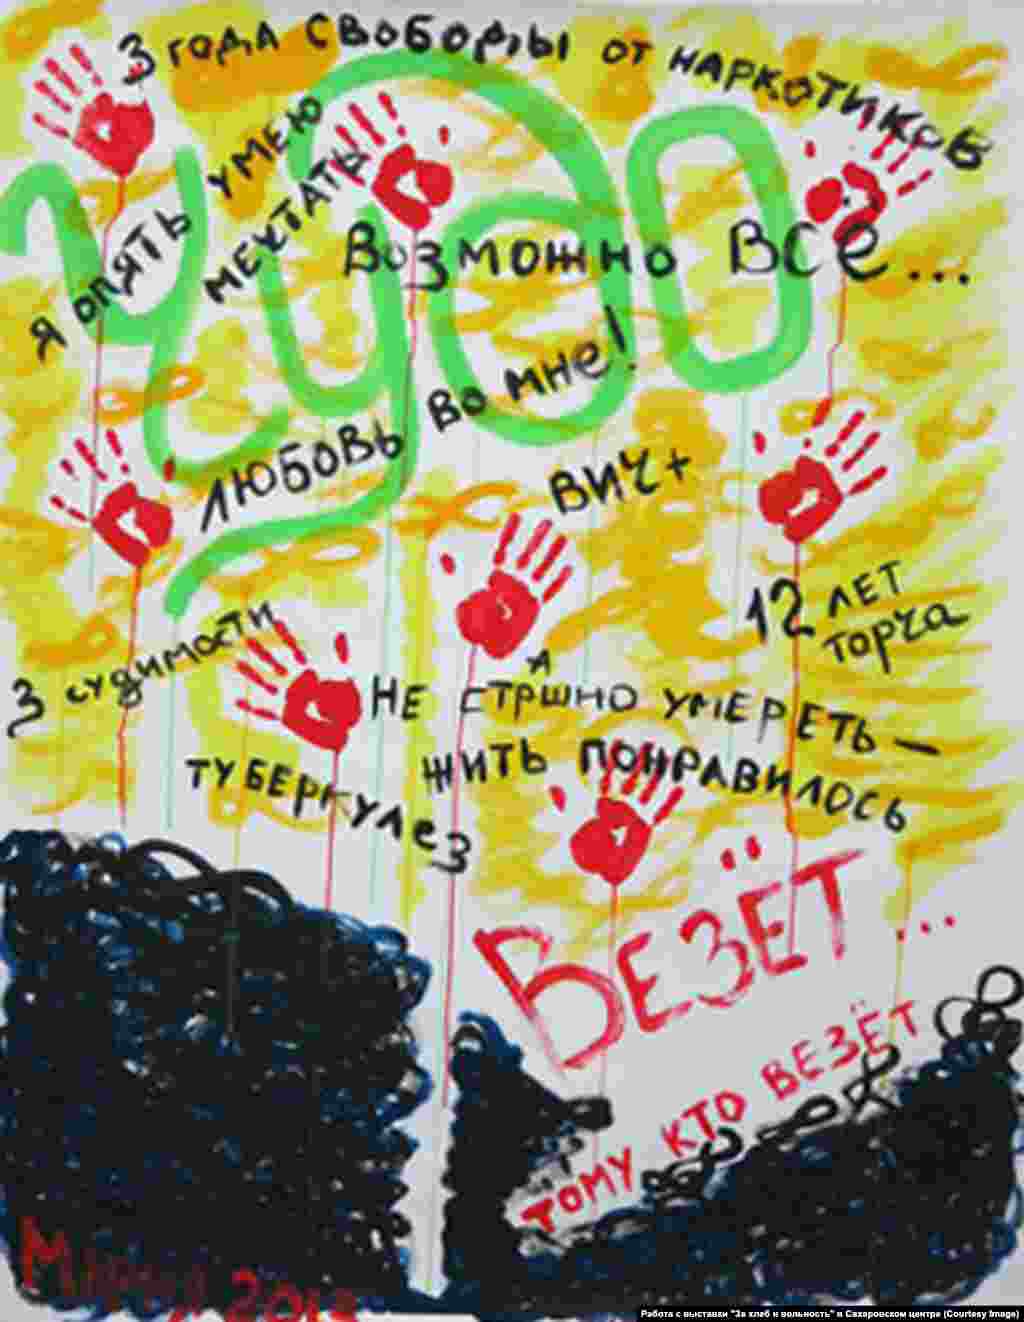 3 года свободы от наркотиков
Чудо
я опять умею
мечтать
Возможно Всё...
Любовь во мне!
ВИЧ+
12 лет
торча
3 судимости
не стршно умереть –
а
жить понравилось
туберкулез
Везёт...
тому кто везёт
2013
Работа с выставки "За хлеб и вольность" в Сахаровском центре (Courtesy Image)